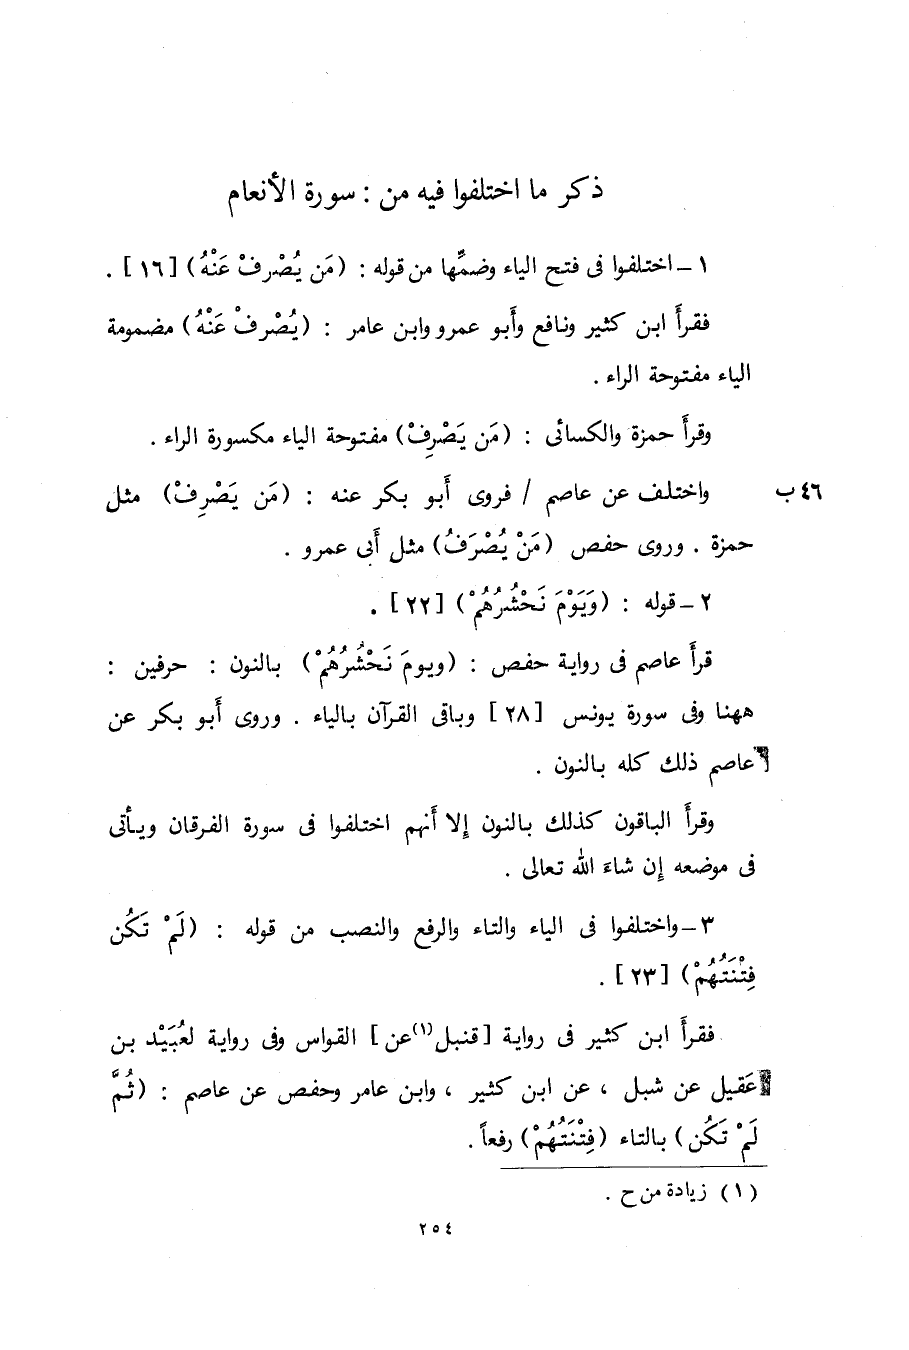 ذكر ما اختلفوا فيه من : سورة الأنعام
١ – اختلفوا فى فتح الياء وضمِّها من قوله : (مَن يُصْرفْ عَنْهُ) [ ١٦ ] .
فقرأَ ابن كثير ونافع وأَبو عمرو وابن عامر : (يُصْرفْ عَنْهُ) مضمومة
الياء مفتوحة الراء .
وقرأَ حمزة والكسائى : (مَن يَصْرِفْ) مفتوحة الياء مكسورة الراء .
٤٦ ب
واختلف عن عاصم / فروى أَبو بكر عنه : (مَن يَصْرِفْ) مثل
حمزة . وروى حفص (مَنْ يُصْرَفُ) مثل أَبى عمرو .
٢ – قوله : (وَيَوْمَ نَحْشُرُهُمْ) [ ٢٢ ] .
قرأَ عاصم فى رواية حفص : (ويومَ نَحْشُرُهُمْ) بالنون : حرفين :
ههنا وفى سورة يونس [ ٢٨ ] وباقى القرآن بالياء . وروى أَبو بكر عن
عاصم ذلك كله بالنون .
وقرأَ الباقون كذلك بالنون إلا أَنهم اختلفوا فى سورة الفرقان ويأتى
فى موضعه إن شاءَ الله تعالى .
٣ – واختلفوا فى الياء والتاء والرفع والنصب من قوله : (لَمْ تَكُن
فِتْنَتُهُمْ) [ ٢٣ ] .
فقرأَ ابن كثير فى رواية [ قنبل(١) عن ] القواس وفى رواية لعُبَيْد بن
عَقيل عن شبل ، عن ابن كثير ، وابن عامر وحفص عن عاصم : (ثُمَّ
لَمْ تَكُن) بالتاء (فِتْنَتُهُمْ) رفعاً .
(١) زيادة من ح .
٢٥٤